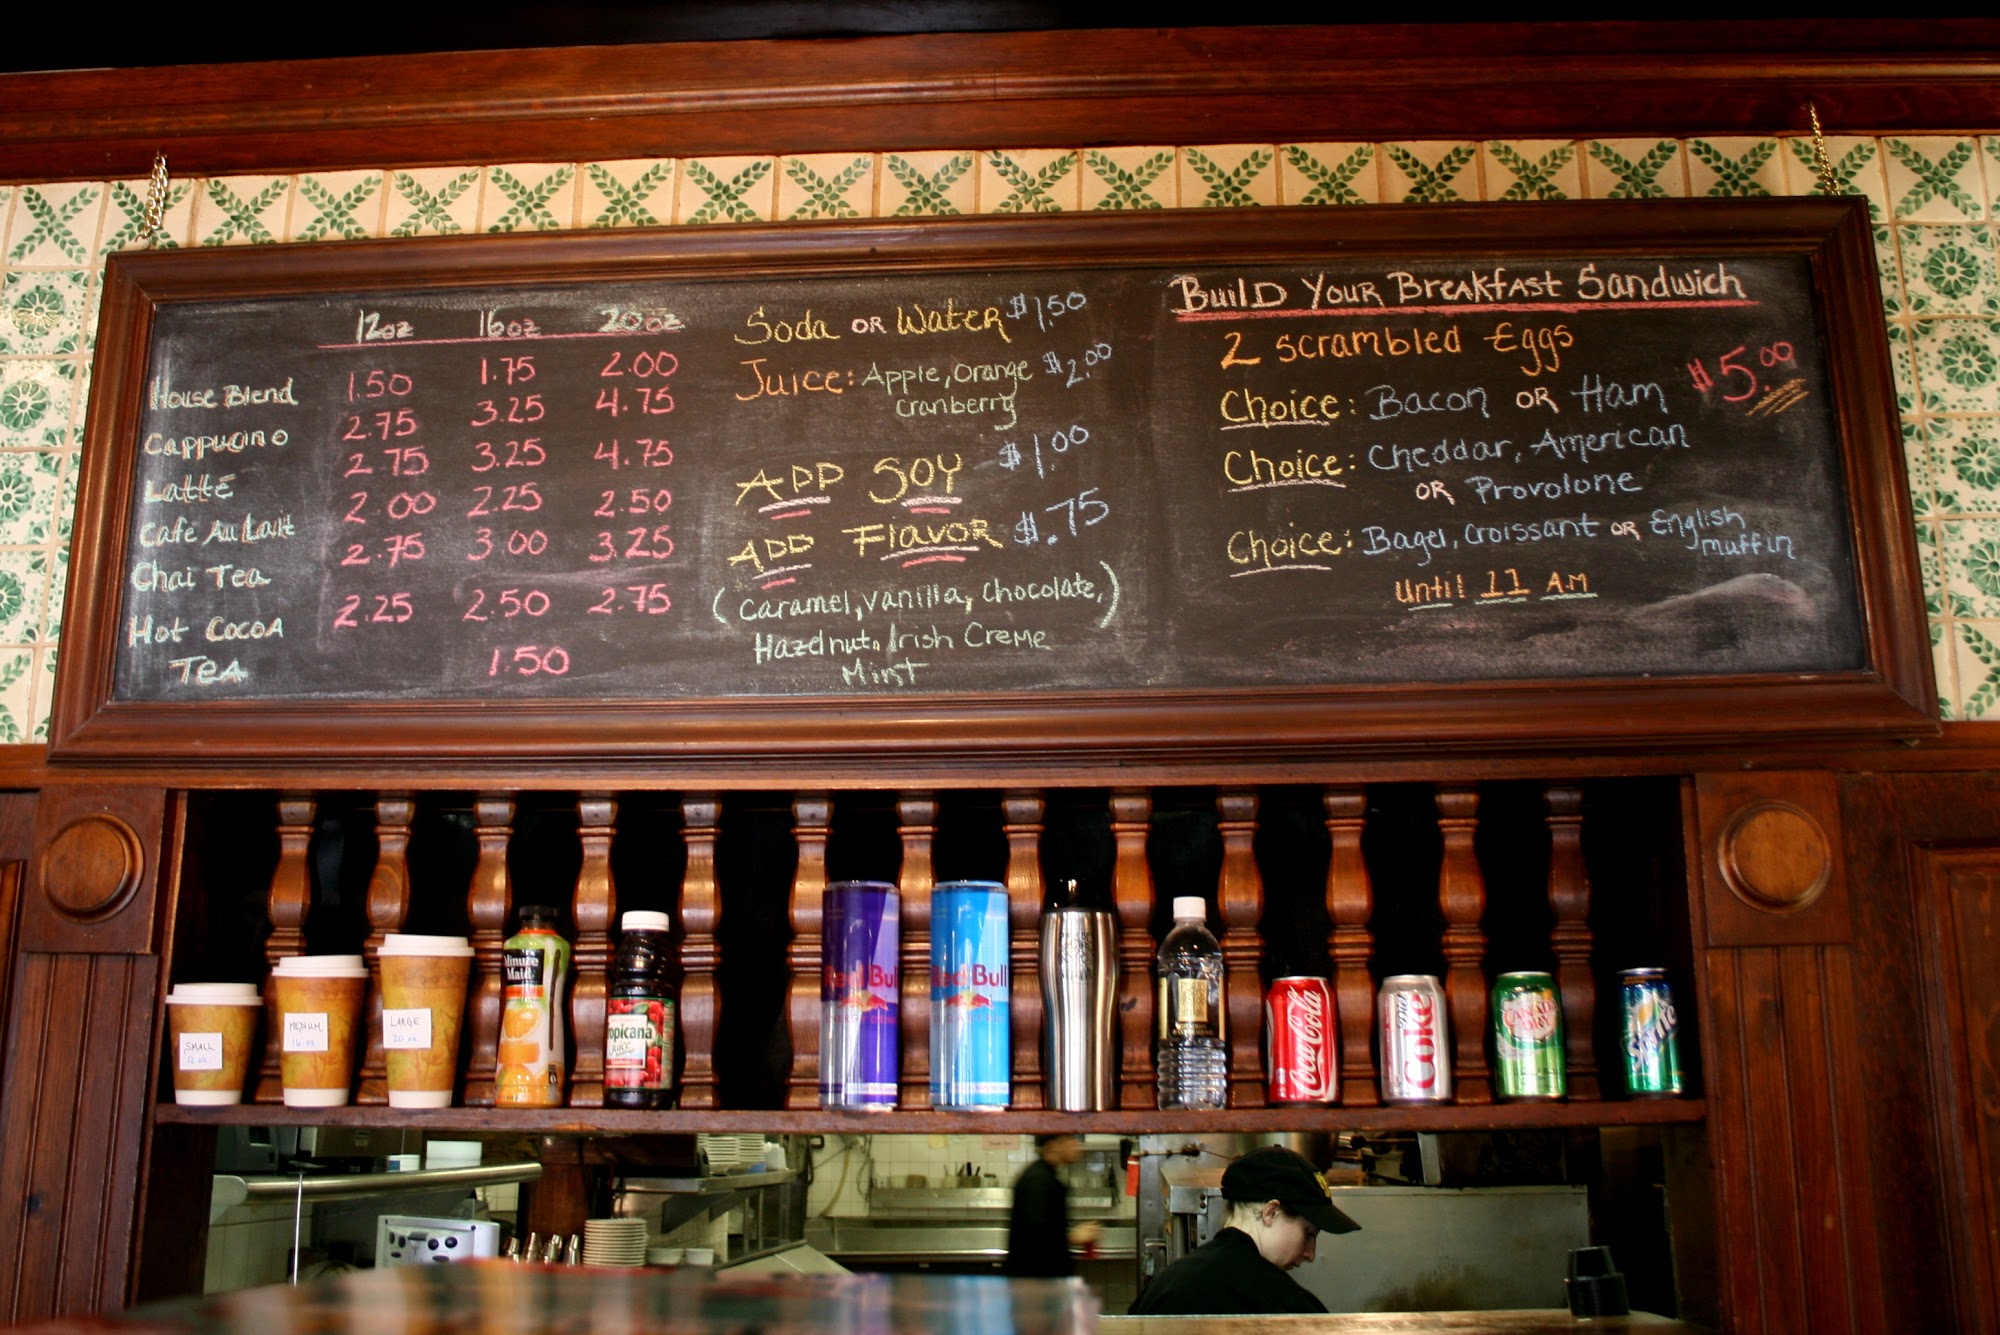 12oz 16oz 20oz
House Blend 1.50 1.75 2.00
Cappucino 2.75 3.25 4.75
Latte 2.75 3.25 4.75
Café Au Lait 2.00 2.25 2.50
Chai Tea 2.75 3.00 3.25
Hot Cocoa 2.25 2.50 2.75
Tea 1.50
Soda or Water $1.50
Juice: Apple, Orange $2.00
cranberry
ADD SOY $1.00
ADD Flavor $.75
(Caramel, Vanilla, Chocolate,)
Hazelnut, Irish Creme
Mint
Build Your Breakfast Sandwich
2 scrambled Eggs
$5.00
Choice: Bacon or Ham
Choice: Cheddar, American
or Provolone
Choice: Bagel, Croissant or English
muffin
Until 11 AM
SMALL
12 oz.
MEDIUM
16 oz.
LARGE
20 oz.
Minute
Maid
Tropicana
juice
Red Bull
Red Bull
Coca-Cola
Diet
Coke
CANADA
DRY
Sprite